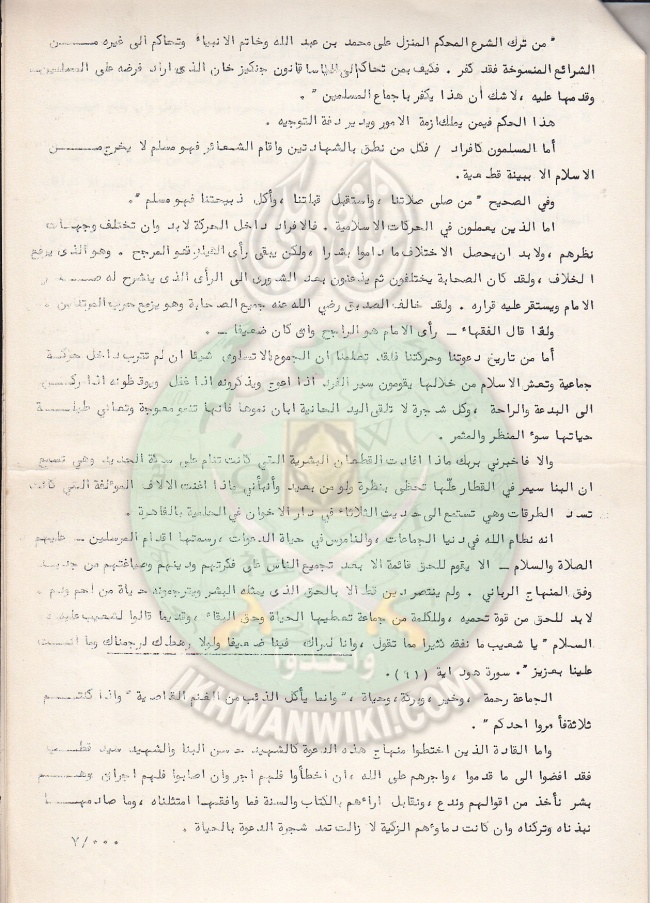 " من ترك الشرع المحكم المنزل على محمد بن عبد الله وخاتم الانبياء وتحاكم الى غيره من
الشرائع المنسوخة فقد كفر . فكيف بمن تحاكم الى الياسا قانون جنكيز خان الذى اراد فرضه على المسلمين
وقدمها عليه ، لا شك أن هذا يكفر باجماع المسلمين " .
هذا الحكم فيمن يملك ازمة الامور ويدير دفة التوجيه .
أما المسلمون كافراد / فكل من نطق بالشهادتين واقام الشعائر فهو مسلم لا يخرج من
الاسلام الا ببينة قطعية .
وفي الصحيح " من صلى صلاتنا ، واستقبل قبلتنا ، وأكل ذبيحتنا فهو مسلم " .
اما الذين يعملون في الحركات الاسلامية . فالافراد داخل الحركة لا بد وان تختلف وجهات
نظرهم ، ولا بد ان يحصل الاختلاف ما داموا بشرا ، ولكن يبقى رأى القيادة هو المرجح . وهو الذى يرفع
الخلاف ، ولقد كان الصحابة يختلفون ثم يذعنون بعد الشورى الى الرأى الذى ينشرح له صدر
الامام ويستقر عليه قراره . ولقد خالف الصديق رضي الله عنه جميع الصحابة وهو يزمع حرب المرتدين
ولذا قال الفقهاء ـ رأى الامام هو الراجح وان كان ضعيفا ـ .
أما من تاريخ دعوتنا وحركتنا فلقد تعلمنا ان الجموع لا تساوى شيئا ان لم تترب داخل حركة
جماعية وتعش الاسلام من خلالها يقومون سير الفرد اذا اعوج ويذكرونه اذا غفل ويوقظونه اذا ركن
الى الدعة والراحة ، وكل شجرة لا تلقى اليد الحانية ابان نموها فانها تنمو معوجة وتعاني طيلة
حياتها سوء المنظر والمثمر .
والا فاخبرني بربك ماذا افادت القطعان البشرية التي كانت تنام على سكة الحديد وهي تسمع
ان البنا سيمر في القطار علها تحظى بنظرة ولو من بعيد وانبأني ماذا اغنت الالاف المؤلفة التي كانت
تسد الطرقات وهي تستمع الى حديث الثلاثاء في دار الاخوان في الحلمية بالقاهرة .
انه نظام الله في دنيا الجماعات ، والناموس في حياة الدعوات ، رسمتها اقدام المرسلين ـ عليهم
الصلاة والسلام ـ الا يقوم للحق قائمة الا بعد تجميع الناس على فكرتهم ودينهم وصياغتهم من جديد
وفق المنهاج الرباني . ولم ينتصر دين قط الا بالحق الذى يمثله البشر ويترجمونه حياة من
لا بد للحق من قوة تحميه ، وللكلمة من جماعة تعطيها الحياة وحق البقاء ، وقديما قالوا لشعيب عليه
السلام " يا شعيب ما نفقه كثيرا مما تقول ، وانا لنراك فينا ضعيفا ولولا رهطك لرجمناك وما انت
علينا بعزيز " . سورة هود اية (٩١) .
الجماعة رحمة ، وخير ، وبركة ، وحياة ، " وانما يأكل الذئب من الغنم القاصية " واذا كنتم
ثلاثة فأمروا احدكم " .
واما القادة الذين اختطوا منهاج هذه الدعوة كالشهيد حسن البنا والشهيد سيد قطب
فقد افضوا الى ما قدموا ، واجرهم على الله ، ان اخطأوا فلهم اجر وان اصابوا فلهم اجران وهم
بشر نأخذ من اقوالهم وندع ، ونقابل اراءهم بالكتاب والسنة فما وافقهما امتثلناه ، وما صادمهما
نبذناه وتركناه وان كانت دماؤهم الزكية لا زالت تمد شجرة الدعوة بالحياة .
٧/٠٠٠
وأعدوا
IKHWANWIKI.COM